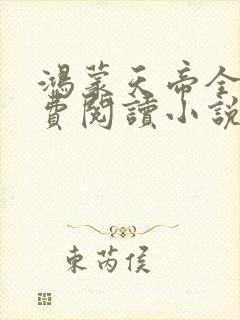 鴻蒙天帝全
費閱讀小說
東芮侯